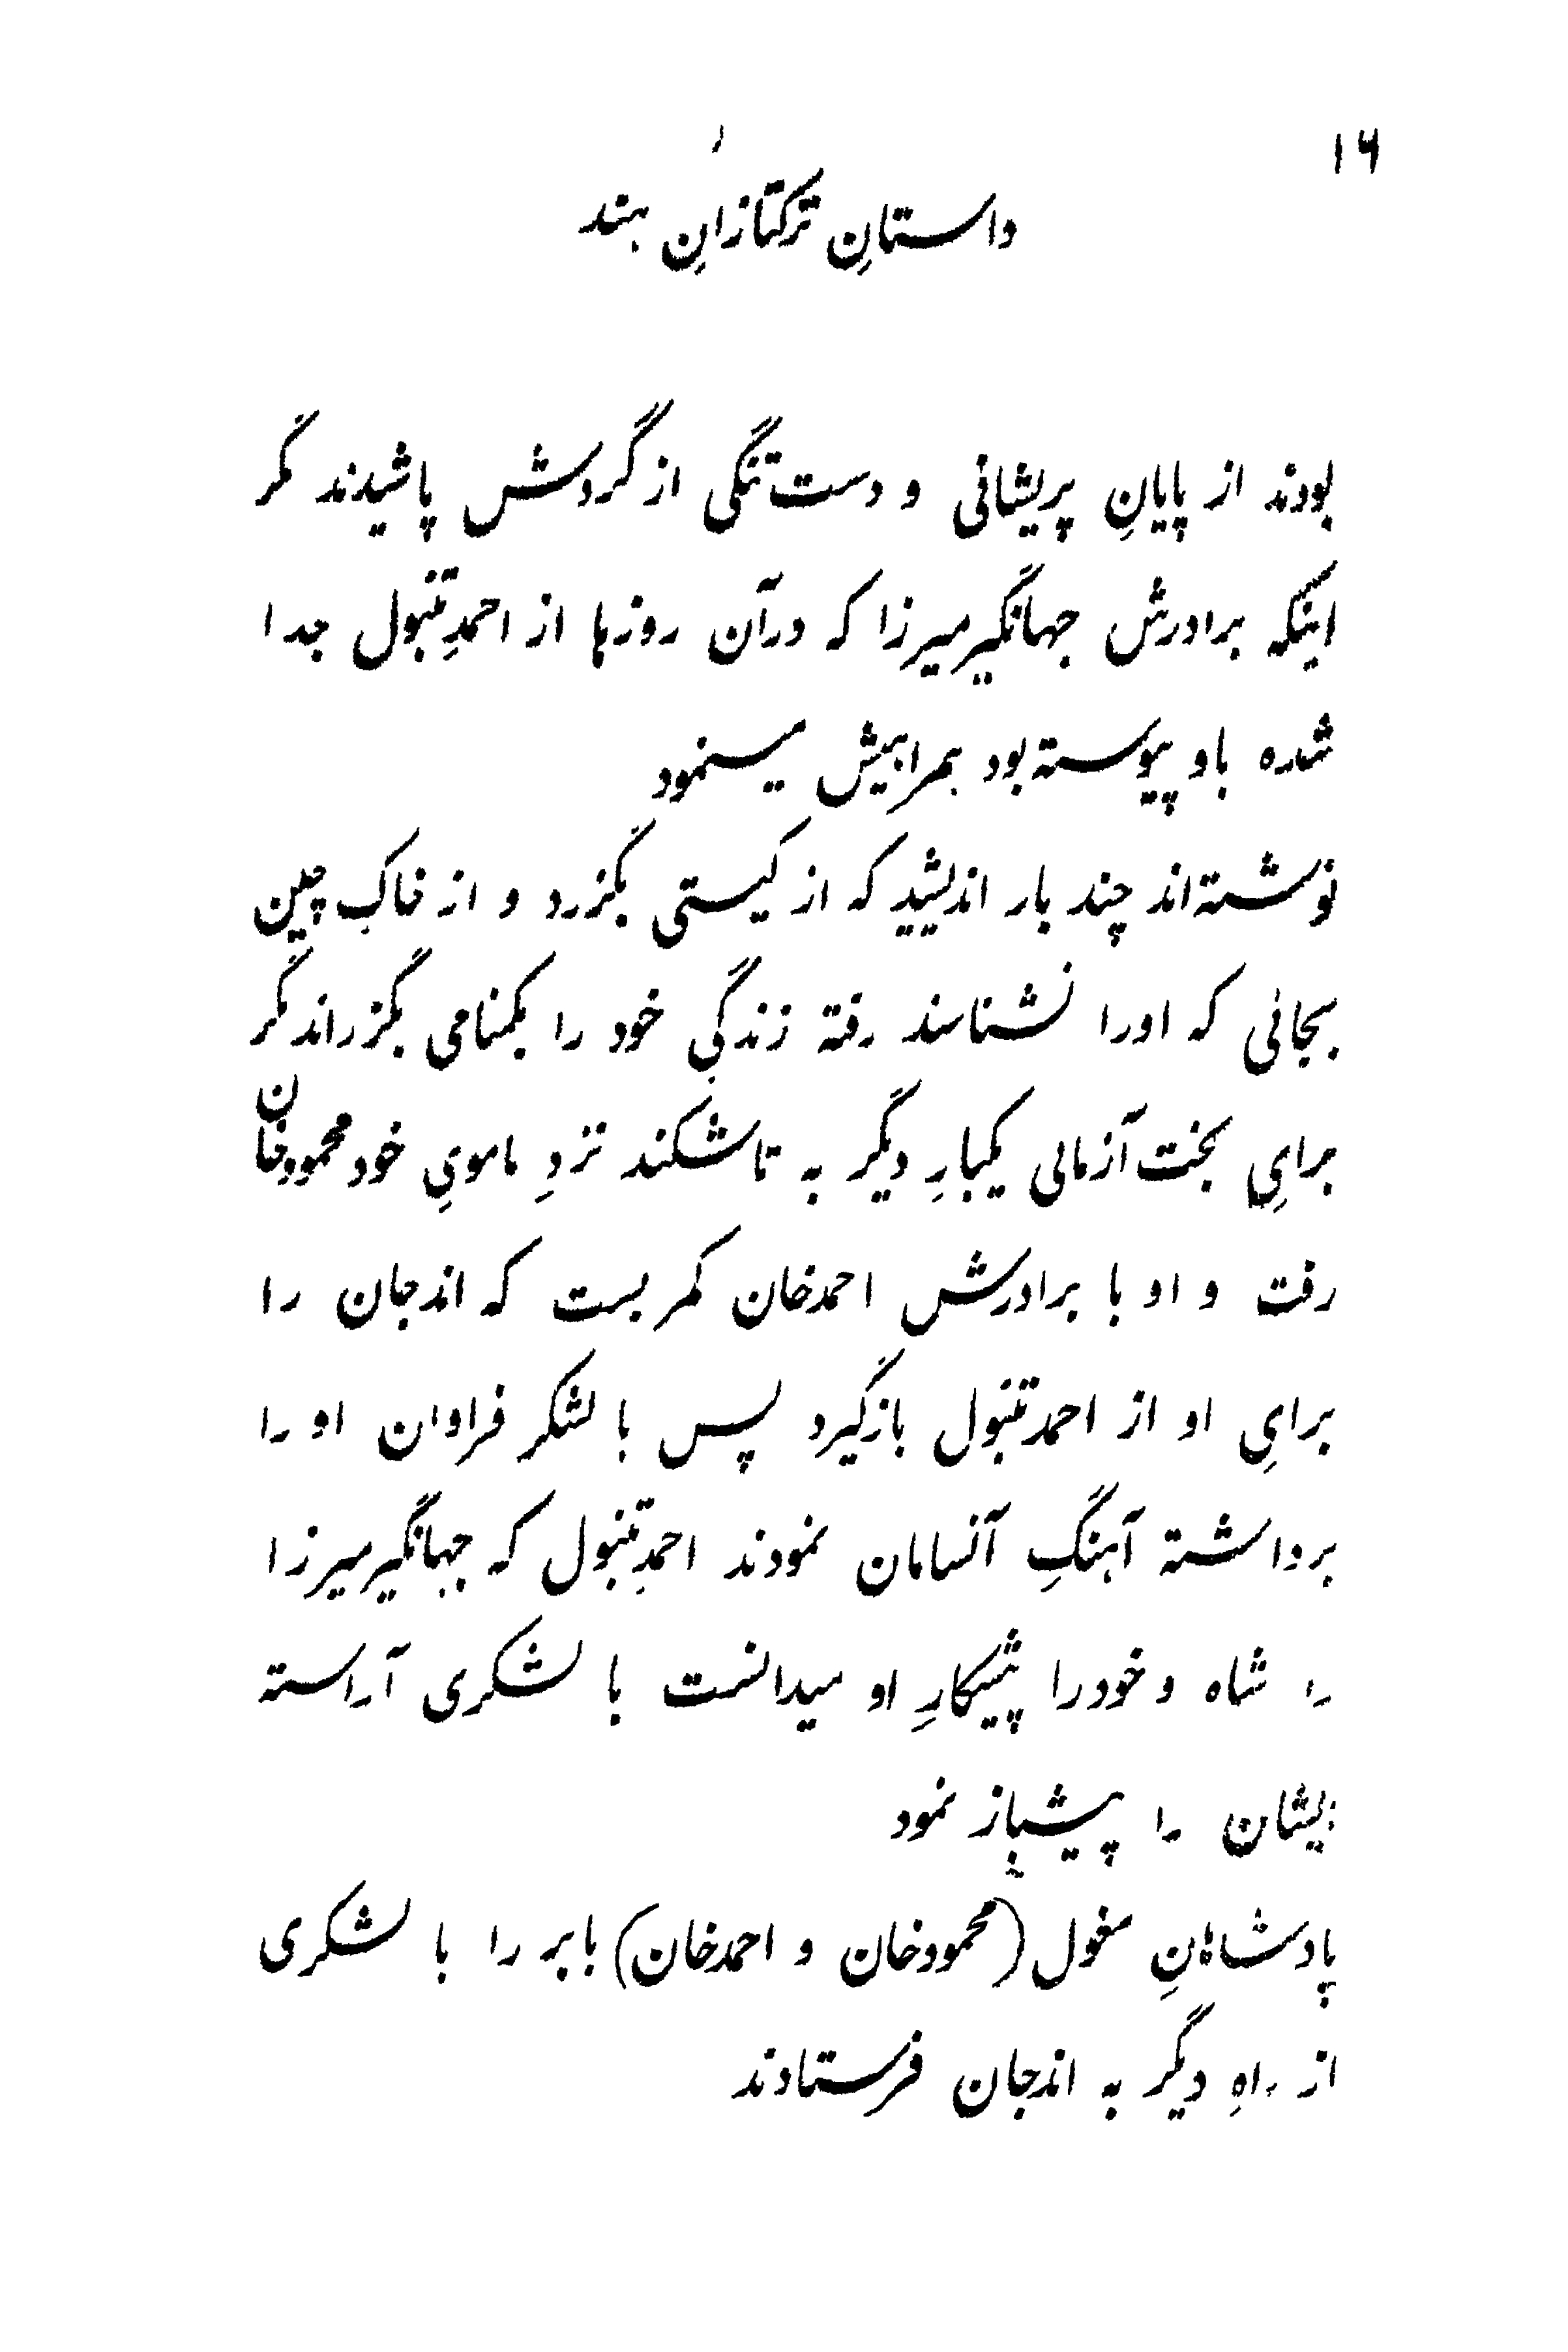 ۱۶
داستانِ ترکتازانِ هند
بودند از پایانِ پریشانی و دست‌تنگی از گردش پاشیدند مگر
اینکه برادرش جهانگیرمیرزا که درآن روزها از احمدِتنبول جدا
شده باو پیوسته‌بود همراهیش مینمود
نوشته‌اند چند بار اندیشید که از کیستی بگزرد و از خاکِ چین
بجائی که اورا نشناسند رفته زندگیِ خود را بگمنامی بگزراند مگر
برایِ بخت‌آزمائی یکبارِ دیگر به تاشکند نزدِ مامویِ خود محمودخان
رفت و او با برادرش احمدخان کمر بست که اندجان را
برایِ او از احمدتنبول بازگیرد پس با لشکر فراوان او را
برداشته آهنگِ آنسامان نمودند احمدِتنبول که جهانگیرمیرزا
را شاه و خودرا پیشکارِ او میدانست با لشکری آراسته
ایشان را پیشباز نمود
پادشاهانِ مغول (محمودخان و احمدخان) بابر را با لشکری
از راهِ دیگر به اندجان فرستادند